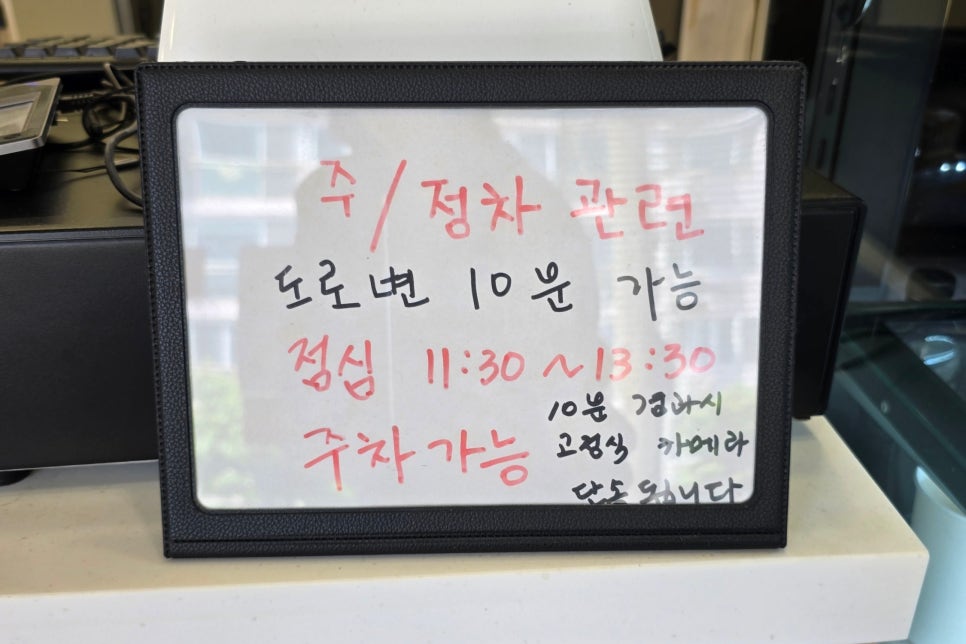 주/정차 관련
도로변 10분 가능
점심 11:30 ~13:30
주차 가능
10분 경과시
고정식 카메라
단속 됩니다